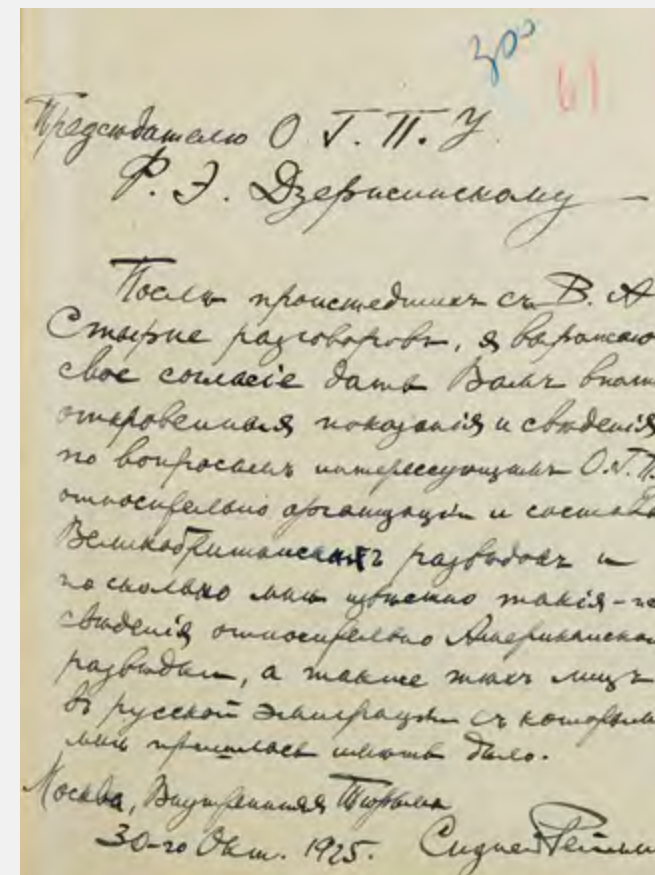 300
61
Предсѣдателю О Г. П. У.
Ф. Э. Дзержинскому —
Послѣ происшедшихъ съ В. А
Стырне разговоровъ, я выражаю
свое согласіе дать Вамъ вполн
откровенныя показанія и свѣденія
по вопросамъ интересующимъ О.Г.П.
относительно организаціи и состава
Великобританскихъ развѣдокъ и
по сколько мнѣ извѣстно такія-же
свѣденія относительно Американской
развѣдки, а также тѣхъ лицъ
въ русской эмиграціи съ которыми
мнѣ пришлось имѣть дѣло.
Москва, Внутренняя Тюрьма
30-го Окт. 1925. Сидней Рейлли